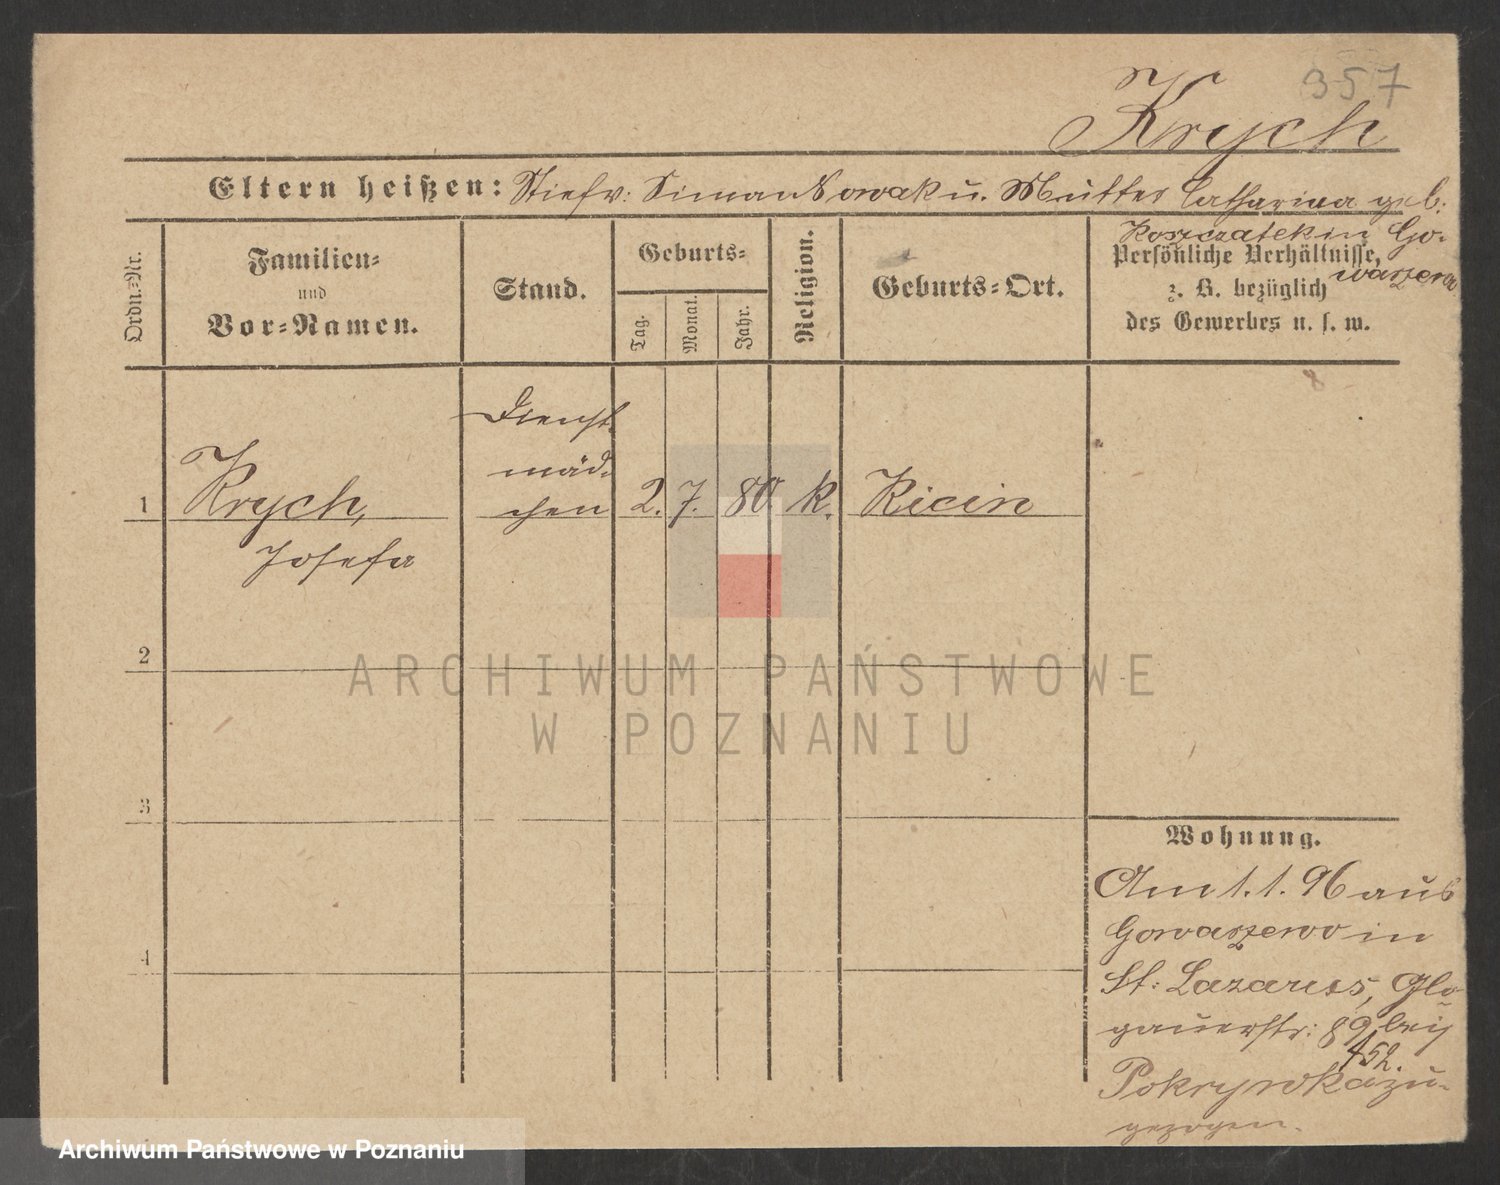 357
Krych
Eltern heißen: Stiefv: Siman Nowak u. Mutter Catharina geb.
Koszczatek in Go-
waszewo
Ordn.-Nr.
Familien-
und
Vor-Namen.
Stand.
Geburts-
Tag.
Monat.
Jahr.
Religion.
Geburts-Ort.
Persönliche Verhältnisse,
z. B. bezüglich
des Gewerbes u. s. w.
8
1
Krych,
Josefa
Dienst
mäd-
chen
2. 7. 80. k. Kicin
2
3
4
Wohnung.
Am 1. 1. 96 aus
Gowaszewo in
St: Lazarus, Glo-
gauerstr: 89 bei
452.
Pokrywka zu-
gezogen.
ARCHIWUM PAŃSTWOWE
W POZNANIU
Archiwum Państwowe w Poznaniu